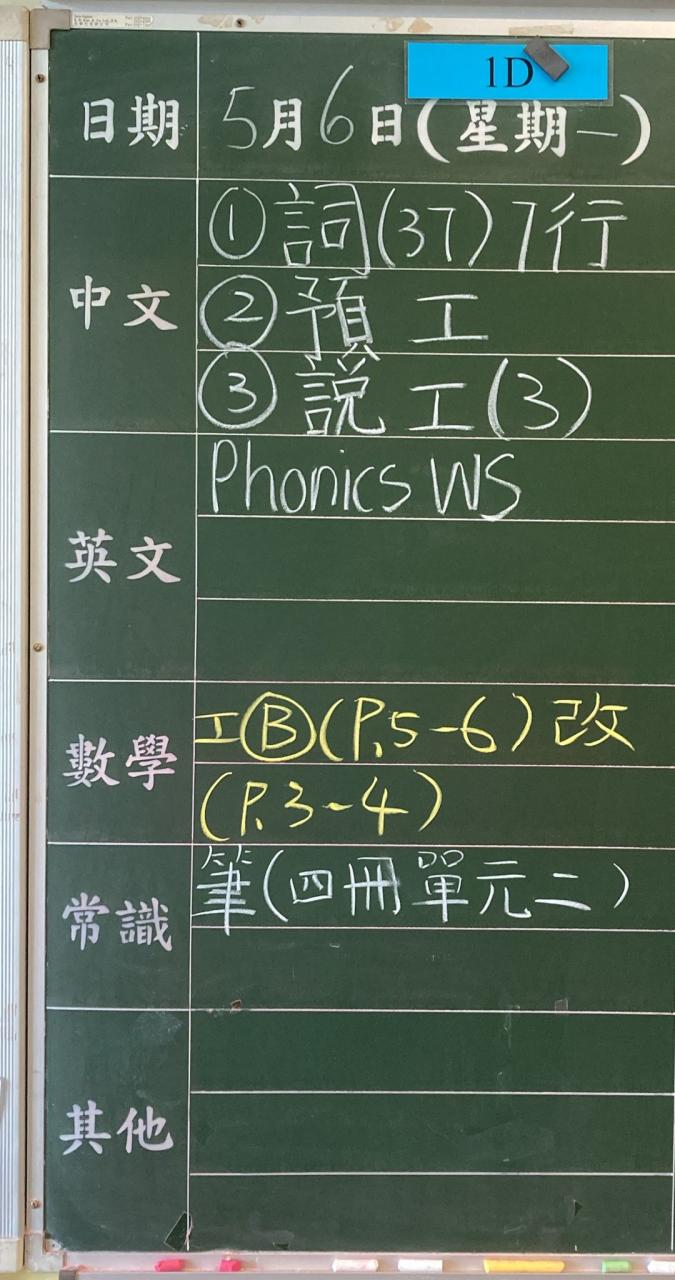 1D
日期 5月6日(星期一)
中文 ①詞(37)7行
②預 工
③説 工(3)
英文 Phonics WS
數學 工Ⓑ(P.5-6)改
(P.3-4)
常識 筆(四冊單元二)
其他